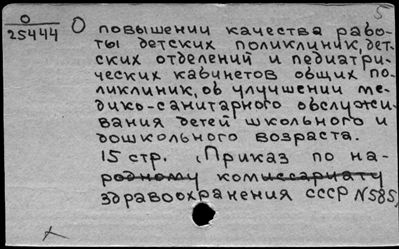 5
О
25444
О повышении качества рабо-
ты детских поликлиник, дет-
ских отделений и педиатри-
ческих кабинетов общих по-
ликлиник, об улучшении ме-
дико-санитарного обслужи-
вания детей школьного и
дошкольного возраста.
15 стр. (Приказ по на-
родному комиссариату
здравоохранения СССР N585,